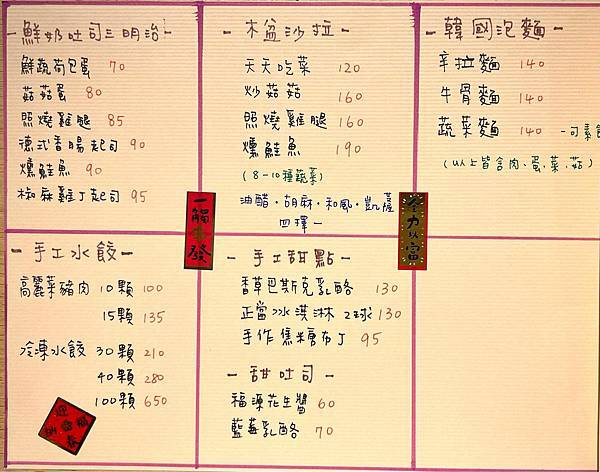 －鮮奶吐司三明治－
鮮蔬荷包蛋 70
菇菇蛋 80
照燒雞腿 85
德式香腸起司 90
燻鮭魚 90
椒麻雞丁起司 95
－木盆沙拉－
天天吃菜 120
炒菇菇 160
照燒雞腿 160
燻鮭魚 190
(8-10種蔬菜)
油醋・胡麻・和風・凱薩
四擇一
－韓國泡麵－
辛拉麵 140
牛骨麵 140
蔬菜麵 140 －可素食
(以上皆含肉、蛋、菜、菇)
一觸發
全力以富
－手工水餃－
高麗菜豬肉 10顆 100
15顆 135
冷凍水餃 30顆 210
40顆 280
100顆 650
－手工甜點－
香草巴斯克乳酪 130
正當冰淇淋 2球 130
手作焦糖布丁 95
－甜吐司－
福源花生醬 60
藍莓乳酪 70